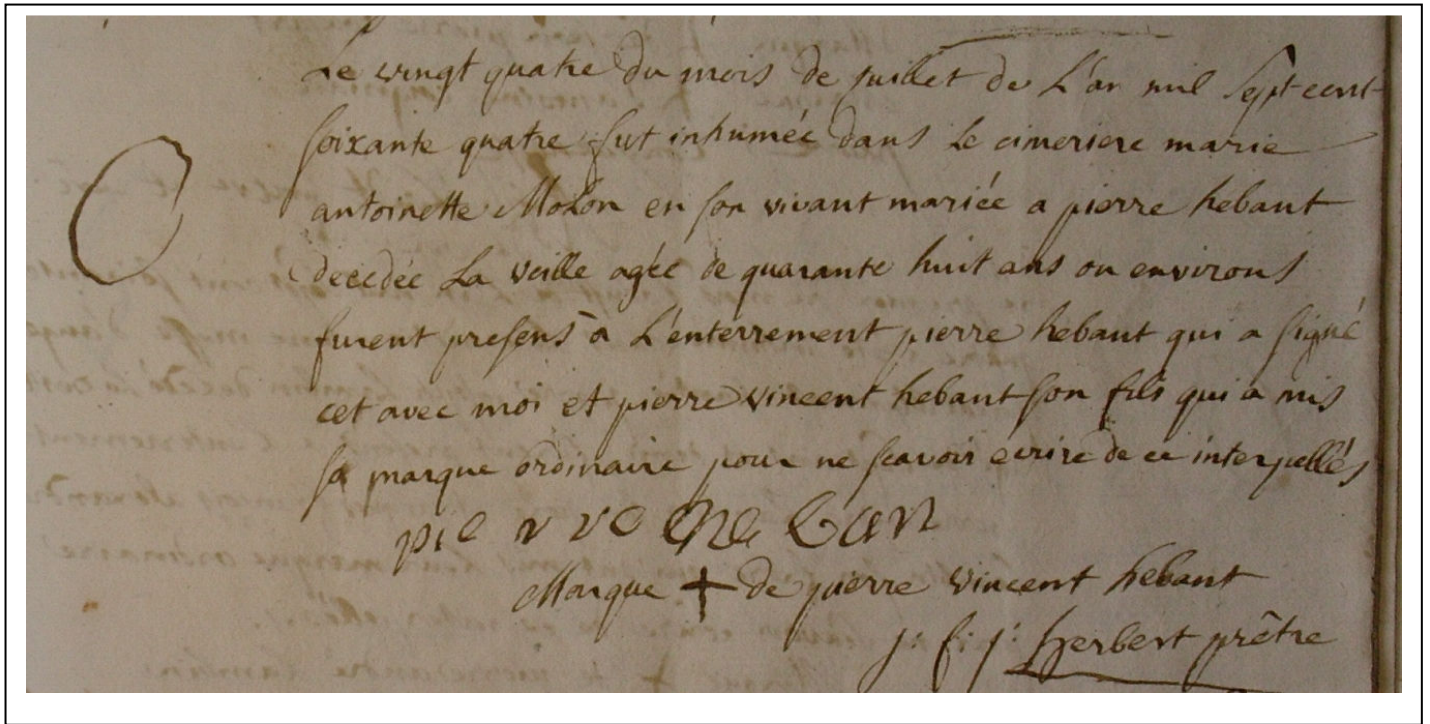 Le vingt quatre du mois de juillet de L'an mil sept cent
soixante quatre fut inhumée dans Le cimetiere marie
antoinette Molon en son vivant mariée a pierre hebant
decedée La veille agée de quarante huit ans ou environs
furent presens à L'enterrement pierre hebant qui a signé
cet avec moi et pierre vincent hebant son fils qui a mis
sa marque ordinaire pour ne scavoir ecrire de ce interpellés
pie r re he ban
Marque + de pierre vincent hebant
j: f: j: herbert prêtre